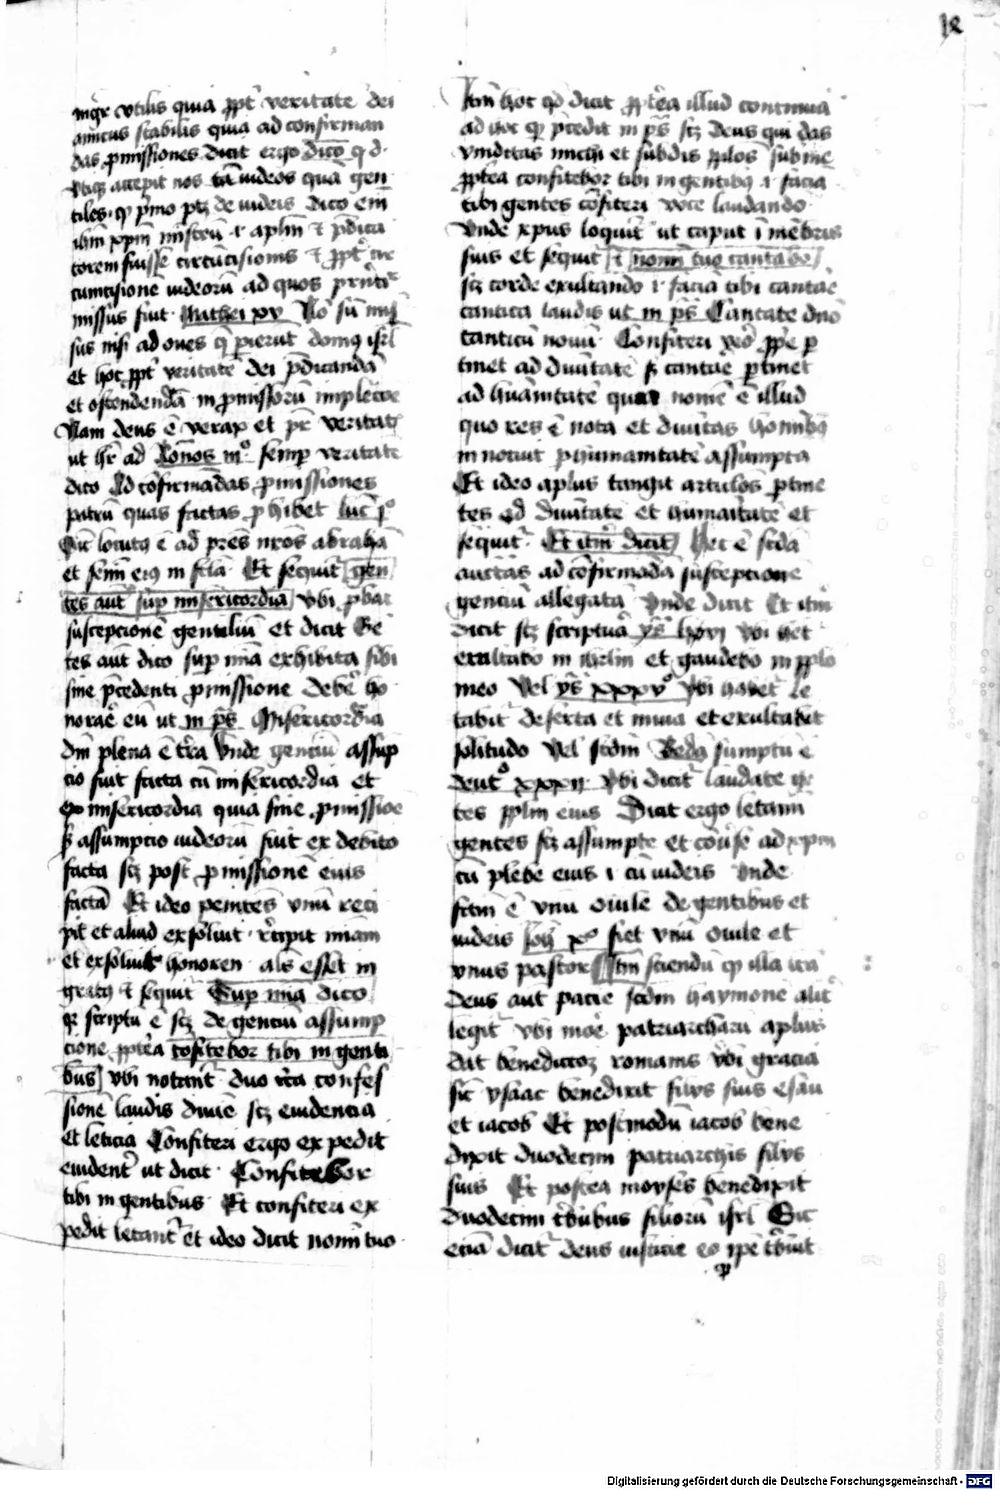 18
mgr̄ vtilis quia ꝓpt̄ veritatē dei
amicus stabilis quia ad confirman
das ꝓmissiones dicit ergo dico ꝙ d
vtiqꝫ accepit nos tā iudeos quā gen
tiles ꝙ pͥmo ptꝫ de iudeis dico em̄
ih̄m xp̄m mīstrū ⁊ ap̄lm̄ ⁊ p̄dica
torem fuisse circūcisionis ⁊ ꝓpt̄ cir
cumcisionē iudeorū ad quos
missus fuit Mathei xv Nō sū mis
sus nisi ad oues q̄ ꝑierūt domꝯ isrl̄
et hoc ꝓpt̄ veritatē dei p̄dicandā
et ostendendā in ꝓmissorū implecōe
Nam deus ē verax et pr̄ veritatꝭ
ut hr̄ ad Rōnos iiiº semꝑ veritatē
dico Ad cōfirmādas ꝓmissiones
patrū quas factas ꝓhibet luc̄ jº
Sic̄ locutꝯ ē ad pr̄es nr̄os abrahā
et semī eiꝯ in scl̄a Et sequit̄ gen
tes aut̄ suꝑ misericordia vbi ꝓbat
suscepcionē gentiliū et dicit Gē
tes aūt dico suꝑ miā exhibita sibi
sine p̄cedenti ꝓmissione debē ho
norāe eū ut in p̄s Misericordia
dn̄i plena ē tr̄a Vnde genciū assūp
cio fuit facta cū misericordia et
ex misericordia quia sine ꝓmissiōe
sꝫ assumpcio iudeorū fuit ex debito
facta scꝫ post ꝓmissionē eius
factā Et ideo penitēs vnū reci
pit et aliud exsoluit recipit miam
et exsoluit honorem als̄ esset in
gratꝯ ⁊ sequit̄ Suꝑ miā dico
qꝛ scriptū ē scꝫ de genciū assump
cione ꝓpt̄ea cōfitebor tibi in genti
bus vbi notant̄ duo circa confes
sionē laudis diuīe scꝫ euidencia
et leticia Confiteri ergo expedit
euident̄ ut dicit Confitebor
tibi in gentibus Et confiteri ex
pedit letant̄ et ideo dicit nomī tuo
Itm̄ hoc qd̄ dicit ꝓpt̄ea illud continua
ad hoc ꝙ p̄cedit in p̄s scꝫ Deus qui das
vindictas michi et subdis ꝓplōs sub me
ꝓpt̄ea confitebor tibi in gentibꝯ ⁊ facia
tibi gentes cōfiteri voce laudando
Vnde xpus loquit̄ ut caput ī mēbris
suis et sequit̄ ⁊ nomī tuo cantabo
scꝫ corde exultando ⁊ facia tibi cantāe
cantica laudis ut in p̄s Cantate dn̄o
canticū nouū Confiteri ꝓpe ꝑ
tinet ad diuitatē sꝫ cantāe ꝑtinet
ad huānitatē quia nomē ē illud
quo res ē nota et diuitas hom̄ibꝯ
innotuit ꝑ humanitatē assumpta
Et ideo aplus tangit articulos ꝑtine
tes ad diuitatē et humaītatē et
sequit̄ Et itm̄ dicit Hec ē sc̄da
auctās ad cōfirmādā suscepcionē
genciū allegata Vnde dicit Et itm̄
dicit scꝫ scriptura ys̄ lxvj vbi het̄
exultabo in ihrl̄m et gaudebo in ꝓplo
meo Vel ys̄ xxxvº Vbi habet̄ le
tabit̄ deserta et inuia et exultabit
solitudo Vel sc̄dm Beda sumptū ē
deutº xxxij vbi dicit laudate gē
tes ꝓplm eius Dicit ergo letam̄
gentes scꝫ assumpte et cōuse ad xpm
cū plebe eius i cū iudeis Vnde
sctm̄ ē vnū ouile de gentibus et
iudeis Joh̄ xº fiet vnū ouile et
vnus pastor Itm̄ sciendū ꝙ illa lr̄a
Deus aut̄ pacie sc̄dm haymonē alit̄
legit̄ vbi moē patriarcharū aplus
dat benedictōꝫ romanis vbi gracia
sic ysaac benedixit filijs suis esau
et iacob Et postmodū iacob bene
dixit duodecim patriarchis filijs
suis Et postea moyses benedixit
duodecim tͥbubus filiorū isrl̄ Sic
eciā dicit̄ deus iusticie eo ipse tͥbuit
Digitalisierung gefördert durch die Deutsche Forschungsgemeinschaft - DFG